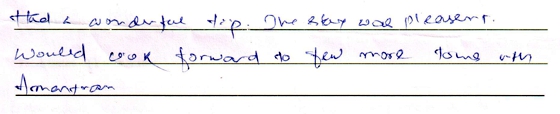 Had a wonderful trip. The stay was pleasent.
Would look forward to few more tours with